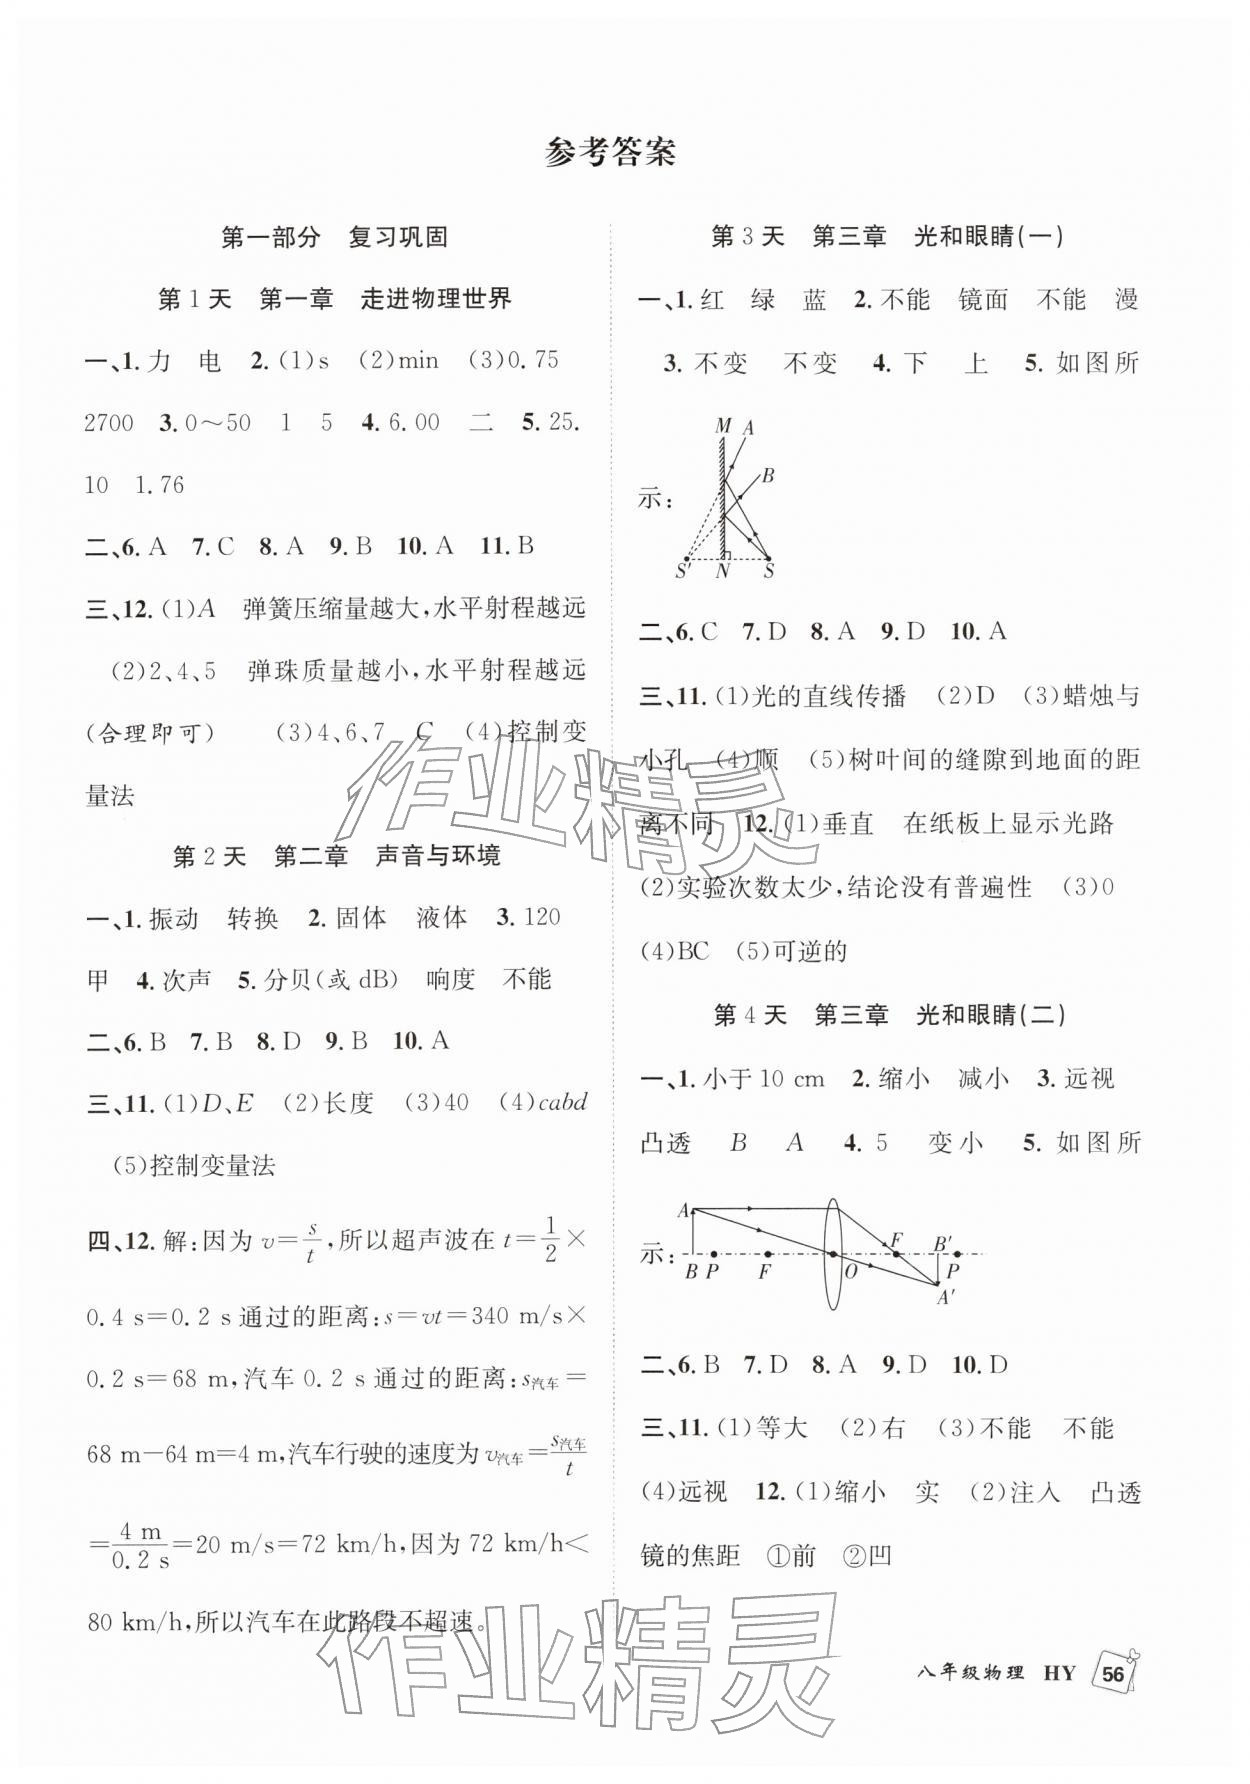 参考答案
第一部分 复习巩固
第1天 第一章 走进物理世界
一、1.力 电 2.(1)s (2)min (3)0.75
2700 3.0～50 1 5 4.6.00 二 5.25.
10 1.76
二、6.A 7.C 8.A 9.B 10.A 11.B
三、12.(1)A 弹簧压缩量越大,水平射程越远
(2)2、4、5 弹珠质量越小,水平射程越远
(合理即可) (3)4、6、7 C (4)控制变
量法
第2天 第二章 声音与环境
一、1.振动 转换 2.固体 液体 3.120
甲 4.次声 5.分贝(或dB) 响度 不能
二、6.B 7.B 8.D 9.B 10.A
三、11.(1)D、E (2)长度 (3)40 (4)cabd
(5)控制变量法
四、12.解:因为v=s/t,所以超声波在t=1/2×
0.4 s=0.2 s通过的距离:s=vt=340 m/s×
0.2 s=68 m,汽车0.2 s通过的距离:s汽车=
68 m-64 m=4 m,汽车行驶的速度为v汽车=s汽车/t
=4 m/0.2 s=20 m/s=72 km/h,因为72 km/h<
80 km/h,所以汽车在此路段不超速。
第3天 第三章 光和眼睛(一)
一、1.红 绿 蓝 2.不能 镜面 不能 漫
3.不变 不变 4.下 上 5.如图所
示:
M A
B
S' N S
二、6.C 7.D 8.A 9.D 10.A
三、11.(1)光的直线传播 (2)D (3)蜡烛与
小孔 (4)顺 (5)树叶间的缝隙到地面的距
离不同 12.(1)垂直 在纸板上显示光路
(2)实验次数太少,结论没有普遍性 (3)0
(4)BC (5)可逆的
第4天 第三章 光和眼睛(二)
一、1.小于10 cm 2.缩小 减小 3.远视
凸透 B A 4.5 变小 5.如图所
示:
A
F B'
B P F O P
A'
二、6.B 7.D 8.A 9.D 10.D
三、11.(1)等大 (2)右 (3)不能 不能
(4)远视 12.(1)缩小 实 (2)注入 凸透
镜的焦距 ①前 ②凹
作业精灵
作业精灵
八年级物理 HY 56